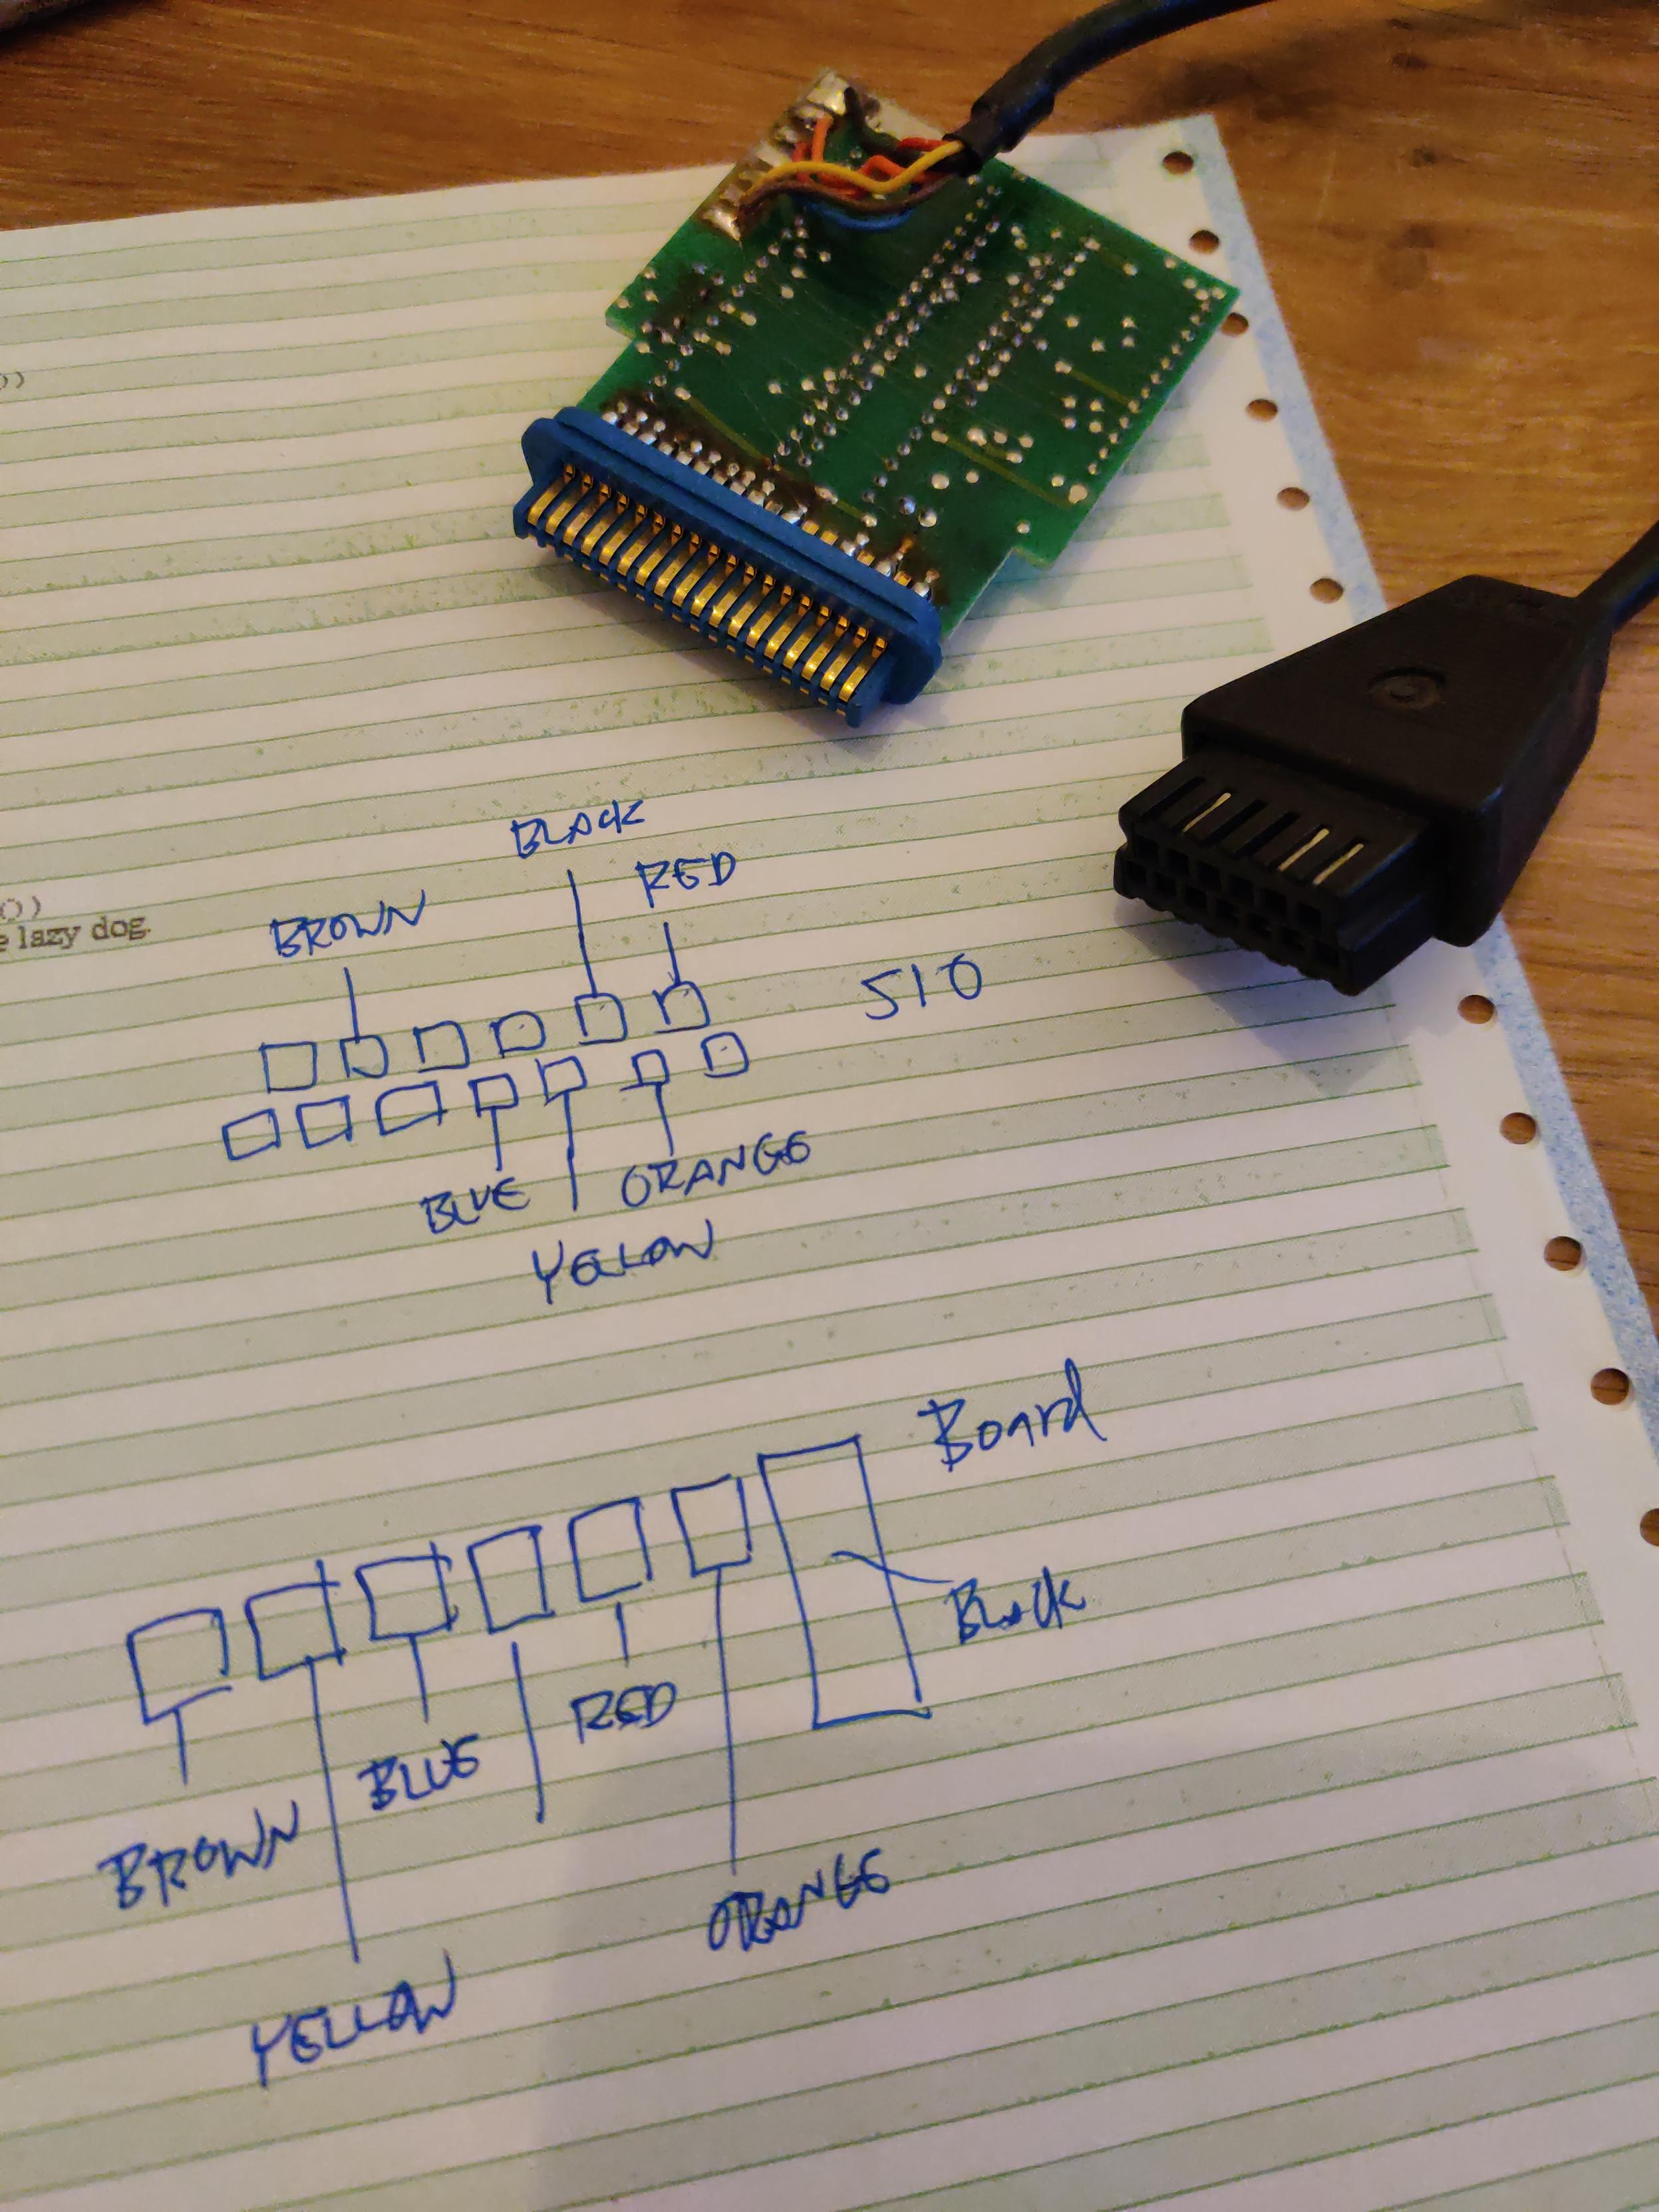 ))
())
e lazy dog.
BLACK
RED
BROWN
SIO
BLUE
ORANGE
YELLOW
Board
Black
RED
BLUE
BROWN
ORANGE
YELLOW